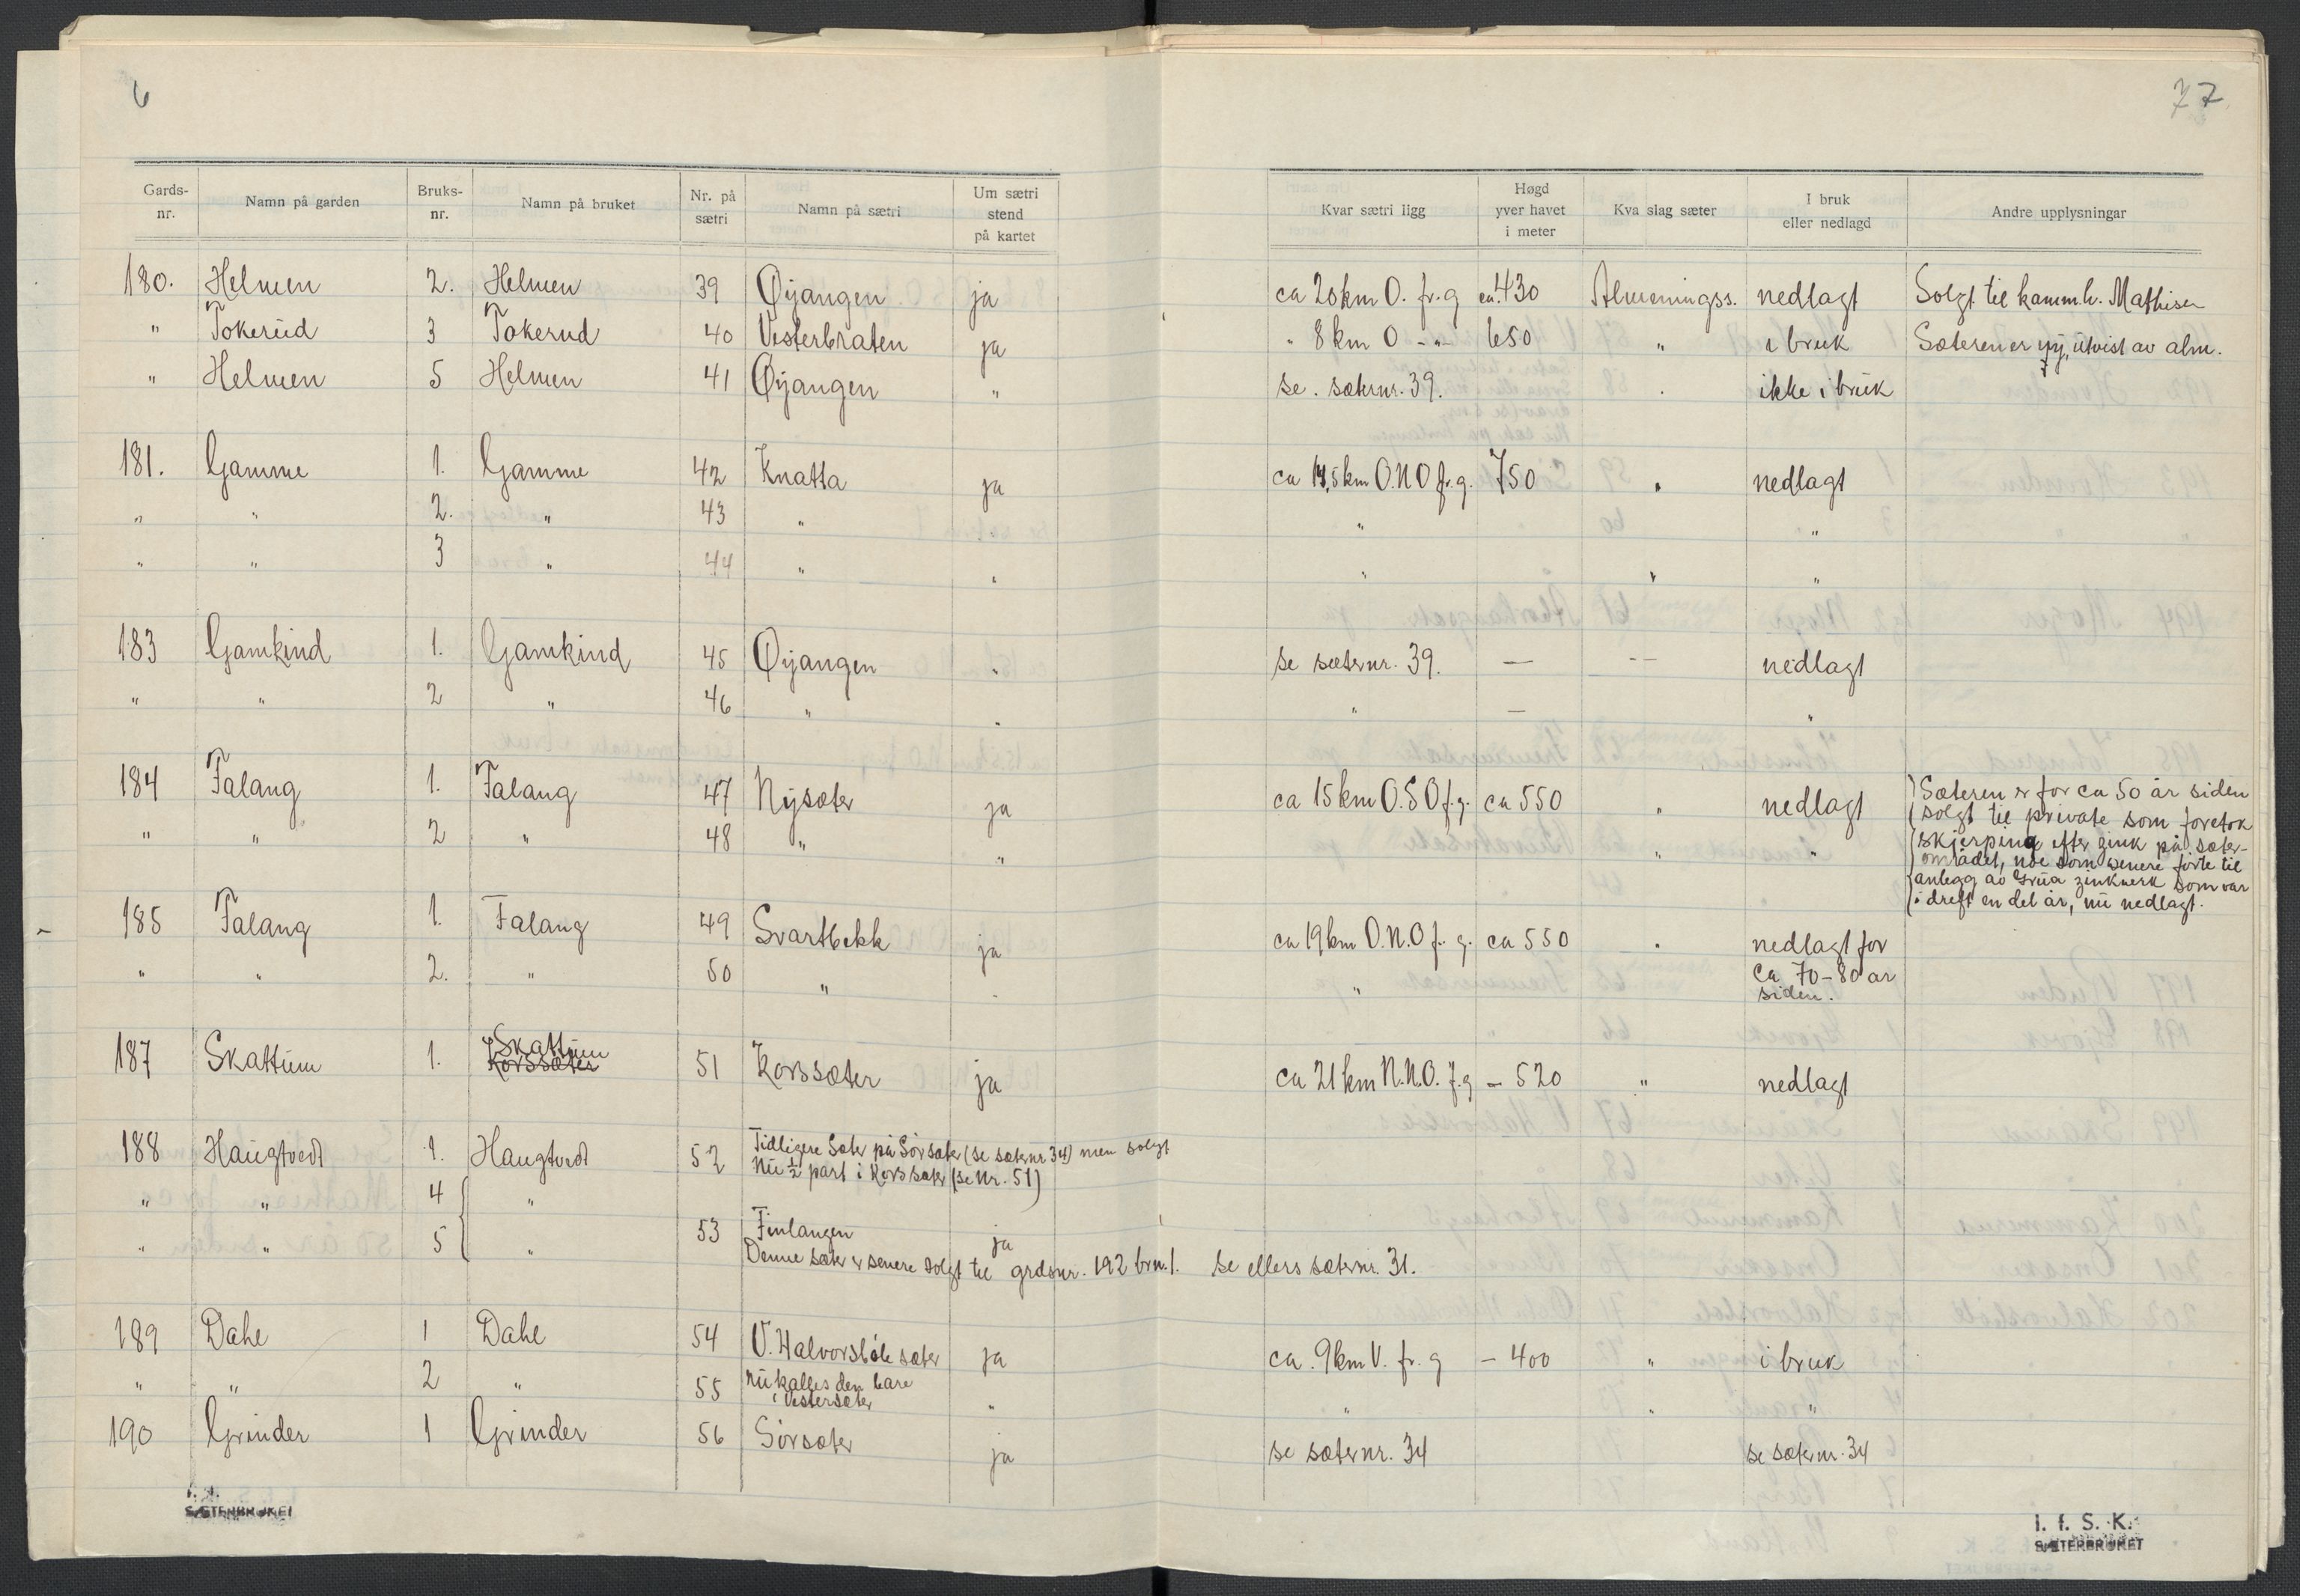 6
77
Gards-nr. Namn på garden Bruks-nr. Namn på bruket Nr. på sætri Namn på sætri Um sætri stend på kartet Kvar sætri ligg Høgd yver havet i meter Kva slag sæter I bruk eller nedlagd Andre upplysningar
180. Helmen 2. Helmen 39 Øyangen ja ca 20 km O. fr. g ca. 430 Almenningss. nedlagt Solgt til kamm.h. Mathisen
" Tokerud 3 Tokerud 40 Vesterbraten ja " 8 km O -"- 650 " i bruk Sæteren er ny, utvist av alm.
" Helmen 5 Helmen 41 Øyangen " se. sæternr. 39. " ikke i bruk
181. Gamme 1. Gamme 42 Knatta ja ca 14,5 km O.N.O fr. g. 750 " nedlagt
" " 2. " 43 " " "
" " 3 " 44 " " " " "
183 Gamkind 1. Gamkind 45 Øyangen " se sæternr. 39. — -- nedlagt
" " 2 " 46 " " " — "
184 Falang 1. Falang 47 Nysæter ja ca 15 km O.S.O f.g. ca 550 " nedlagt Sæteren er for ca 50 år siden
solgt til private som foretok
" " 2 " 48 " " " "
skjerping efter zink på sæter-
området, noe som senere førte til
anlegg av Grua zinkverk som var
i drift en del år, nu nedlagt.
185 Falang 1. Falang 49 Svartbekk ja ca 19 km O.N.O f. g. ca 550 " nedlagt for
" " 2. " 50 " " " ca 70-80 år
siden.
187 Skattum 1. Skattum 51 Korssæter ja ca 21 km N.N.O. f.g – 520 " nedlagt
Korssæter
188 Haugtvedt 1. Haugtvedt 52 Tidligere Sæter på Sørsæter (se sæternr 34) men solgt
Nu ½ part i Korssæter (se Nr. 51)
" " 4 "
" " 5 " 53 Finlangen ja
Denne sæter er senere solgt til grdsnr. 192 brn. 1. se ellers sæternr. 31.
189 Dahl 1 Dahl 54 V. Halvorsbøle sæter ja ca. 9 km V. fr. g – 400 " i bruk
" " 2 " 55 Nu kalles den bare
Vestersæter " " " "
190 Grinder 1 Grinder 56 Sørsæter ja se sæternr. 34 se sæternr. 34
SÆTERBRUKET
I. f. S. K.
SÆTERBRUKET